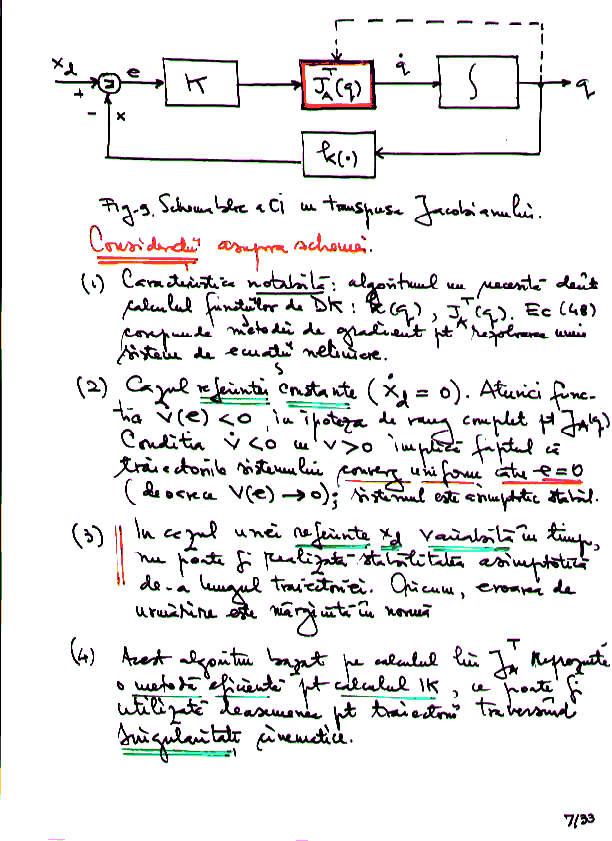 x_d + - e K J_A^T(q) q̇ ∫ q
x k(·)
Fig-9. Schema bloc a CI cu transpusa Jacobianului.
Considerații asupra schemei.
(1) Caracteristica notabilă: algoritmul nu necesită decât
calculul funcțiilor de DK: k(q), J_A^T(q). Ec (48)
corespunde metodei de gradient pt rezolvarea unui
sistem de ecuații neliniare.
(2) Cazul referinței constante (ẋ_d = 0). Atunci func-
tia V̇(e) < 0, in ipoteza de rang complet pt J_A(q)
Conditia V̇<0 cu V>0 implică faptul că
traiectoriile sistemului converg uniform către e=0
(deoarece V(e) → 0); sistemul este asimptotic stabil.
(3) In cazul unei referințe x_d variabilă în timp,
nu poate fi realizată stabilitatea asimptotică
de-a lungul traiectoriei. Oricum, eroarea de
urmărire este mărginită în normă
(4) Acest algoritm bazat pe calculul lui J_A^T reprezintă
o metodă eficientă pt calculul IK, ce poate fi
utilizată deasemenea pt traiectorii traversând
singularități cinematice.
7/33